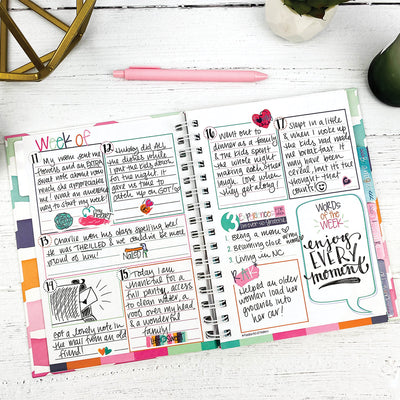 Week of
11
My mom sent me
flowers and an EXTRA
sweet note about how
much she appreciates
me! What an awesome
way to start my week!
12
Hubby did ALL
the dishes while
I put the kids down
for the night. It
gave us time to
catch up on GOT!
13
Charlie won his class spelling bee!
He was THRILLED & we couldn't be more
proud of him!
14
Got a lovely note in
the mail from an old
friend!
15
Today I am
thankful for a
full pantry, access
to clean water, a
roof over my head
& a wonderful
family!
16
Went out to
dinner as a family
& the kids spent
the whole night
making each other
laugh. Love when
they get along!
17
Slept in a little
& when I woke up
the kids had made
me breakfast. It
may have been
cereal, but it's the
thought that
counts
3
1. Being a mom
2. Becoming close
3. Living in NC
Helped an older
woman load her
groceries into
her car!
WORDS
of the
WEEK
enjoy
EVERY
moment